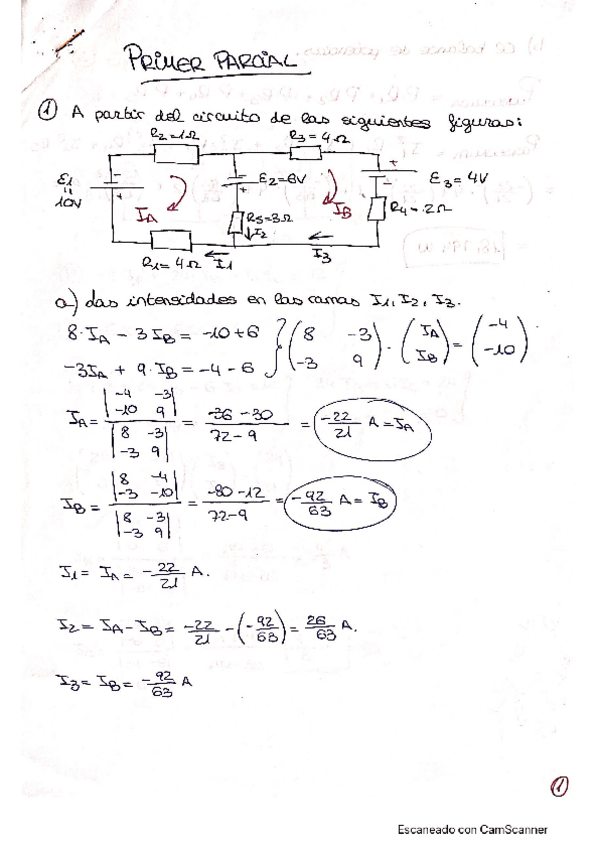 PRIMER PARCIAL
① A partir del circuito de las siguientes figuras:
R2=1Ω
R3=4Ω
E1
=
10V
IA
E2=6V
IB
E3=4V
R5=3Ω
R4=2Ω
I2
R1=4Ω
I1
I3
a) las intensidades en las ramas I1, I2, I3.
8·IA - 3IB = -10+6 } (8 -3) · (IA) = (-4)
-3IA + 9·IB = -4-6 } (-3 9) (IB) (-10)
IA = |-4 -3| |-10 9| / |8 -3| |-3 9| = -36-30 / 72-9 = -22/21 A = IA
IB = |8 -4| |-3 -10| / |8 -3| |-3 9| = -80-12 / 72-9 = -92/63 A = IB
I1 = IA = -22/21 A.
I2 = IA - IB = -22/21 - (-92/63) = 26/63 A.
I3 = IB = -92/63 A
①
Escaneado con CamScanner